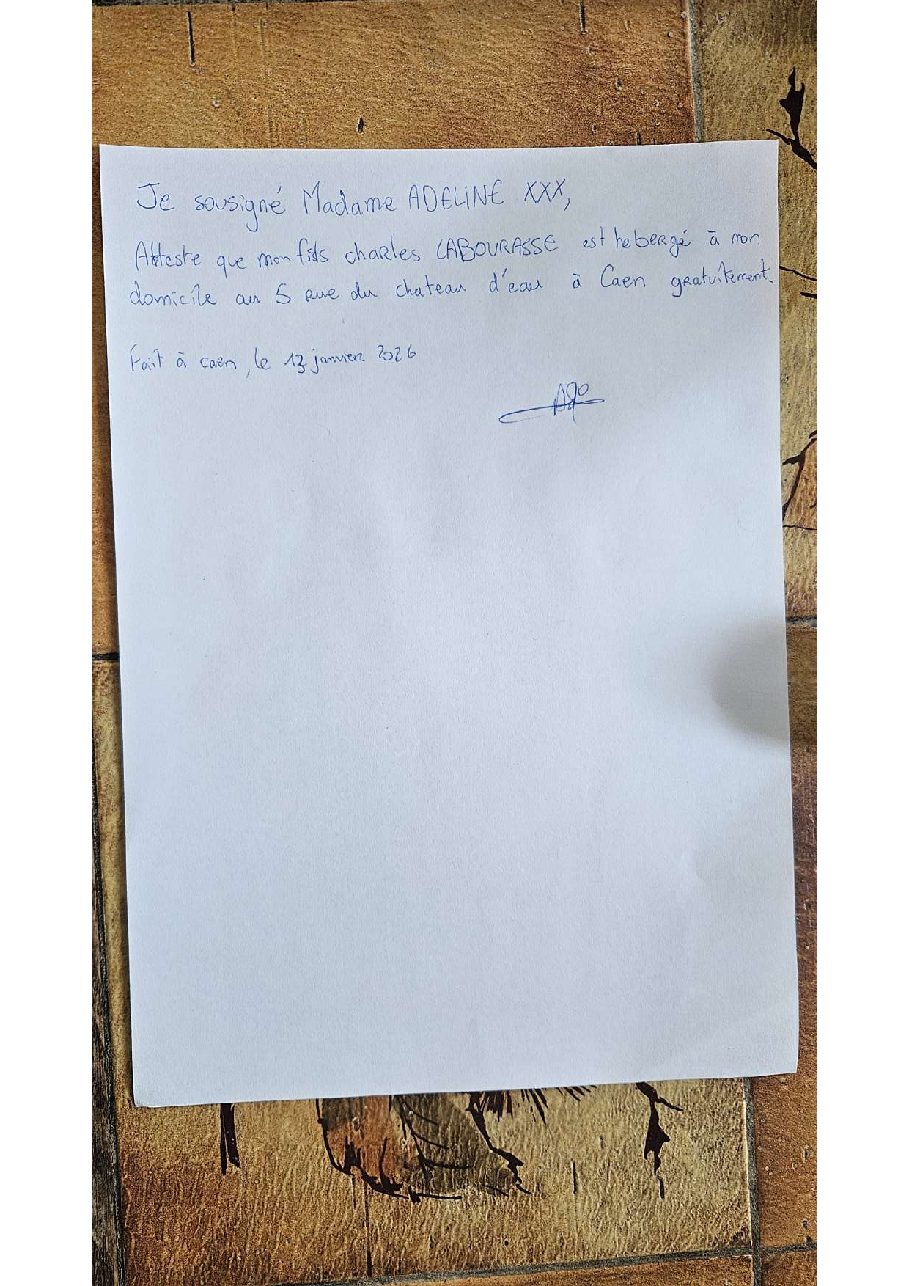 Je sousigné Madame ADELINE XXX,
Atteste que mon fils charles LABOURASSE est hebergé à mon
domicile au 5 rue du chateau d'eau à Caen gratuitement.
Fait à caen, le 13 janvier 2026